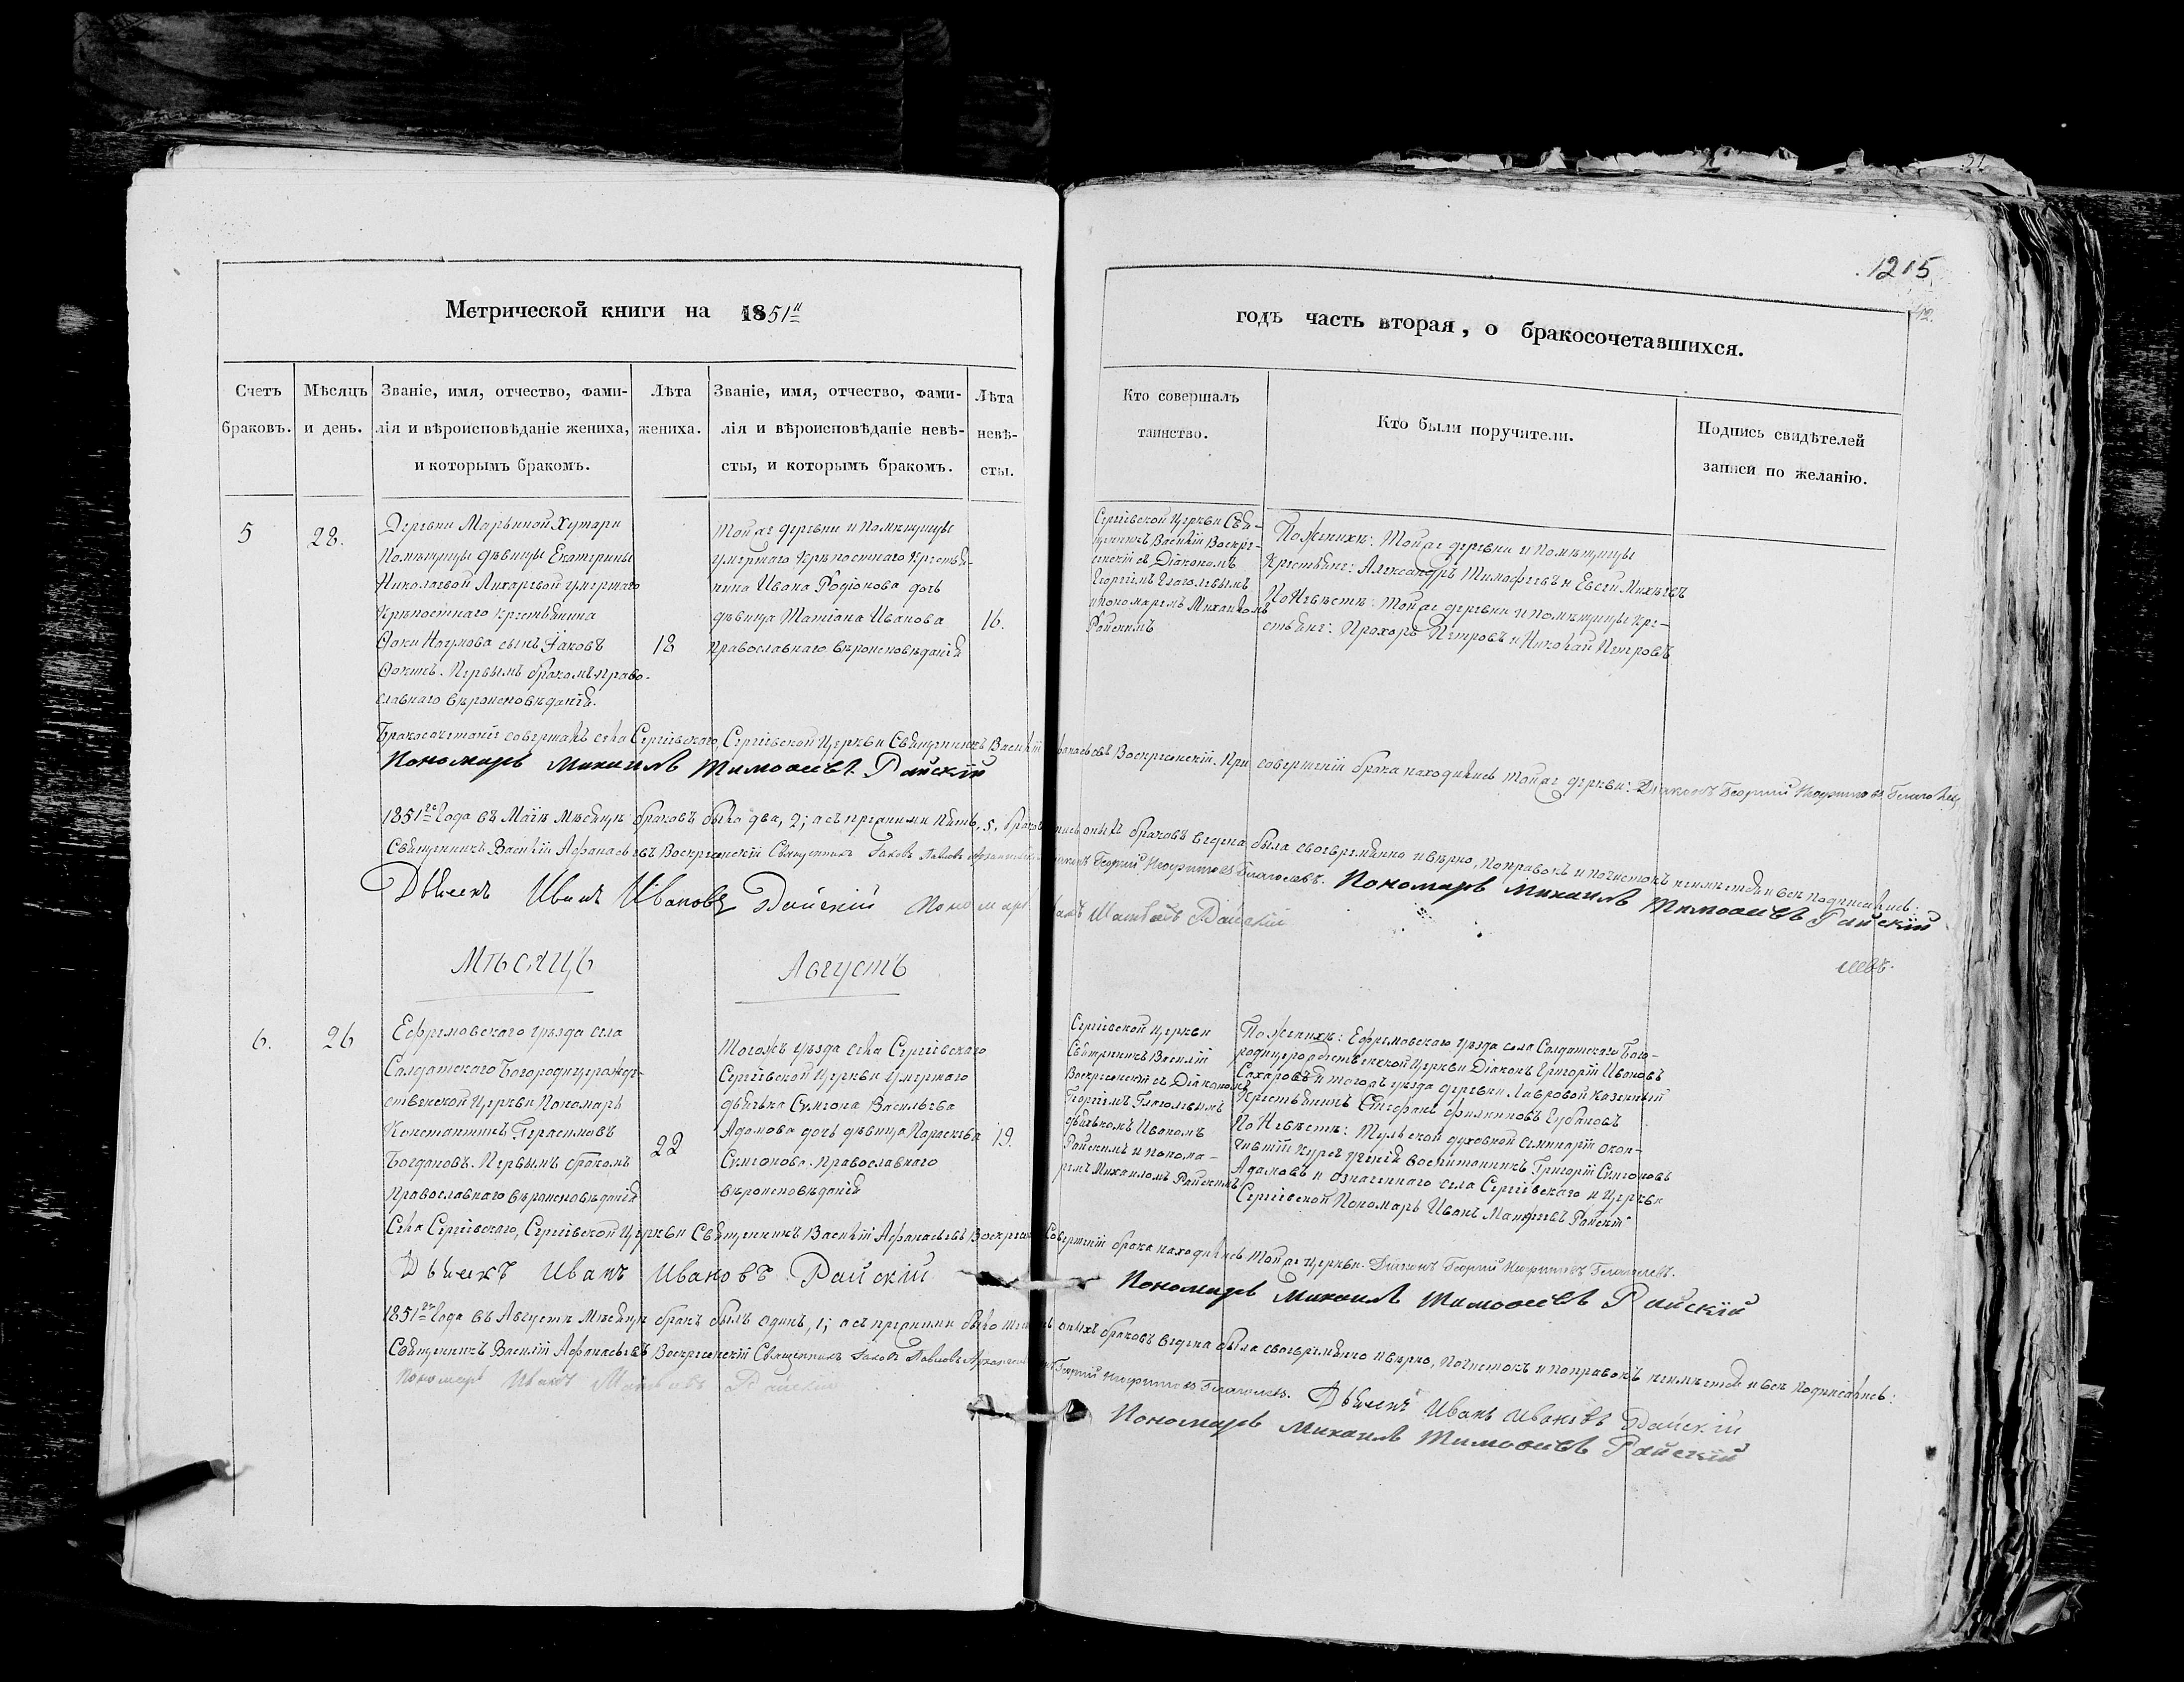 1215
42.
Метрической книги на 1851й
годъ часть вторая, о бракосочетавшихся.
Счетъ браковъ.
Мѣсяцъ и день.
Званіе, имя, отчество, фами-
лія и вѣроисповѣданіе жениха,
и которымъ бракомъ.
Лѣта
жениха.
Званіе, имя, отчество, фами-
лія и вѣроисповѣданіе невѣ-
сты, и которымъ бракомъ.
Лѣта
невѣ-
сты.
Кто совершалъ
таинство.
Кто были поручители.
Подпись свидѣтелей
записи по желанію.
5
28.
Деревни Марьиной Хутари
Помѣщицы дѣвицы Екатерины
Николаевой Лихаревой умершаго
крѣпостнаго крестьянина
Ѳоки Наумова сынъ Іаковъ
Ѳокинъ. Первымъ бракомъ право-
славнаго вѣроисповѣданія.
18
Той же деревни и помѣщицы
умершаго крѣпостнаго крестья-
нина Ивана Родіонова дочь
дѣвица Татіана Иванова
православнаго вѣроисповѣданія
16.
Сергіевской Церкви Свя-
щенникъ Василій Воскре-
сенскій съ Діакономъ
Георгіемъ Глаголевымъ
и пономаремъ Михаиломъ
Райскимъ
По Женихѣ: Той же деревни и помѣщицы
Крестьяне: Александръ Тимофеевъ и Евсей Михѣевъ
По Невѣстѣ: Той же деревни и помѣщицы кре-
стьяне: Прохоръ Петровъ и Николай Петровъ
Бракосочетаніе совершалъ села Сергіевскаго, Сергіевской Церкви Священникъ Василій Афанасьевъ Воскресенскій. При совершеніи брака находились той же церкви: Діаконъ Георгій Неофитовъ Глаголевъ.
Пономарь Михаилъ Тимофеевъ Райскій
1851го Года въ Маіѣ Мѣсяцѣ браковъ было два, 2; а съ прежними пять, 5. браковъ браковъ ведена была своевременно и вѣрно, поправокъ и почистокъ неимѣетъ и всѣ подписались:
Священникъ Василій Афанасьевъ Воскресенскій Священникъ Іаковъ Павловъ Архангельскій Георгій Неофитовъ Глаголевъ. Пономарь Михаилъ Тимофеевъ Райскій
Дьячекъ Иванъ Ивановъ Райскій Пономарь Иванъ Матвѣевъ Райскій
Мѣсяцъ Августъ
6.
26
Ефремовскаго уѣзда села
Солдатскаго Богородицерожде-
ственской Церкви Пономарь
Константинъ Герасимовъ
Богдановъ. Первымъ бракомъ
православнаго вѣроисповѣданія
22
Тогожъ уѣзда села Сергіевскаго
Сергіевской Церкви умершаго
дьячька Симеона Васильева
Адамова дочь дѣвица Параскева
Симеонова. Православнаго
вѣроисповѣданія
19.
Сергіевской церкви
Священникъ Василій
Воскресенскій съ Діакономъ
Георгіемъ Глаголевымъ
дьячькомъ Иваномъ
Райскимъ и понома-
ремъ Михаиломъ Райскимъ
По Женихѣ: Ефремовскаго уѣзда села Солдатскаго Бого-
родицерождественской Церкви Діаконъ Григорій Ивановъ
Сахаровъ и того жъ уѣзда деревни Лавровой казенный
Крестьянинъ Стефанъ Филиповъ Губановъ
По Невѣстѣ: Тульской духовной Семинаріи окон-
чившій курсъ ученія воспитанникъ Григорій Симеоновъ
Адамовъ и означеннаго села Сергіевскаго и Церкви
Сергіевской Пономарь Иванъ Матфеевъ Райскій
Села Сергіевскаго, Сергіевской Церкви Священникъ Василій Афанасьевъ Воскресенскій Совершеніи брака находились той же Церкви. Діаконъ Георгій Неофитовъ Глаголевъ.
Дьячекъ Иванъ Ивановъ Райскій Пономарь Михаилъ Тимофеевъ Райскій
1851го Года въ Августѣ Мѣсяцѣ бракъ былъ одинъ, 1; а съ прежними было оныхъ браковъ ведена была своевременно и вѣрно, почистокъ и поправокъ неимѣетъ и всѣ подписались:
Священникъ Василій Афанасьевъ Воскресенскій Священникъ Іаковъ Павловъ Архангельскій Георгій Неофитовъ Глаголевъ. Дьячекъ Иванъ Ивановъ Райскій
Пономарь Иванъ Матвѣевъ Райскій Пономарь Михаилъ Тимофеевъ Райскій